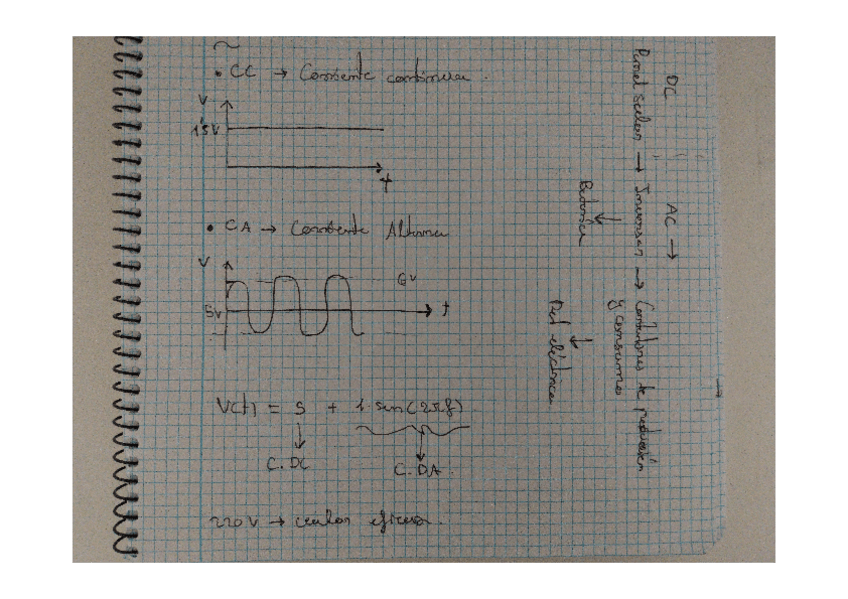 • CC → Corriente continua.
V
1'5V
t
• CA → Corriente Alterna
V
6V
5V
t
V(t) = 5 + 1 sin(2πf)
C. DC
C. DA.
220V → valor eficaz.
DC
AC →
Panel solar → Inversor → Contadores de producción
y consumo
↓
Batería
↓
Red eléctrica